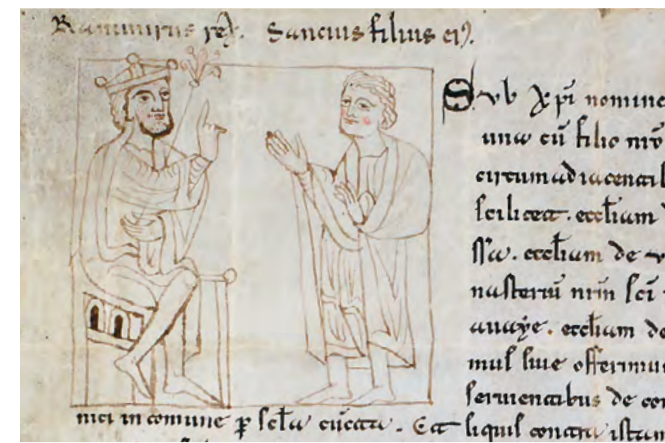 Ranimirus rex. Sancius filius ei9.
Sub xp̄i nomine
una cū filio nr̄o
circumadiacentib
scilicet. eccl̄iam d
ssa. eccl̄iam de
nasteriū nr̄m sc̄i
auaẏe. eccl̄iam de
mul siue offerimu
seruientibus de co
nici in comune ꝑ sc̄la cūcta. Et liquis contra istam